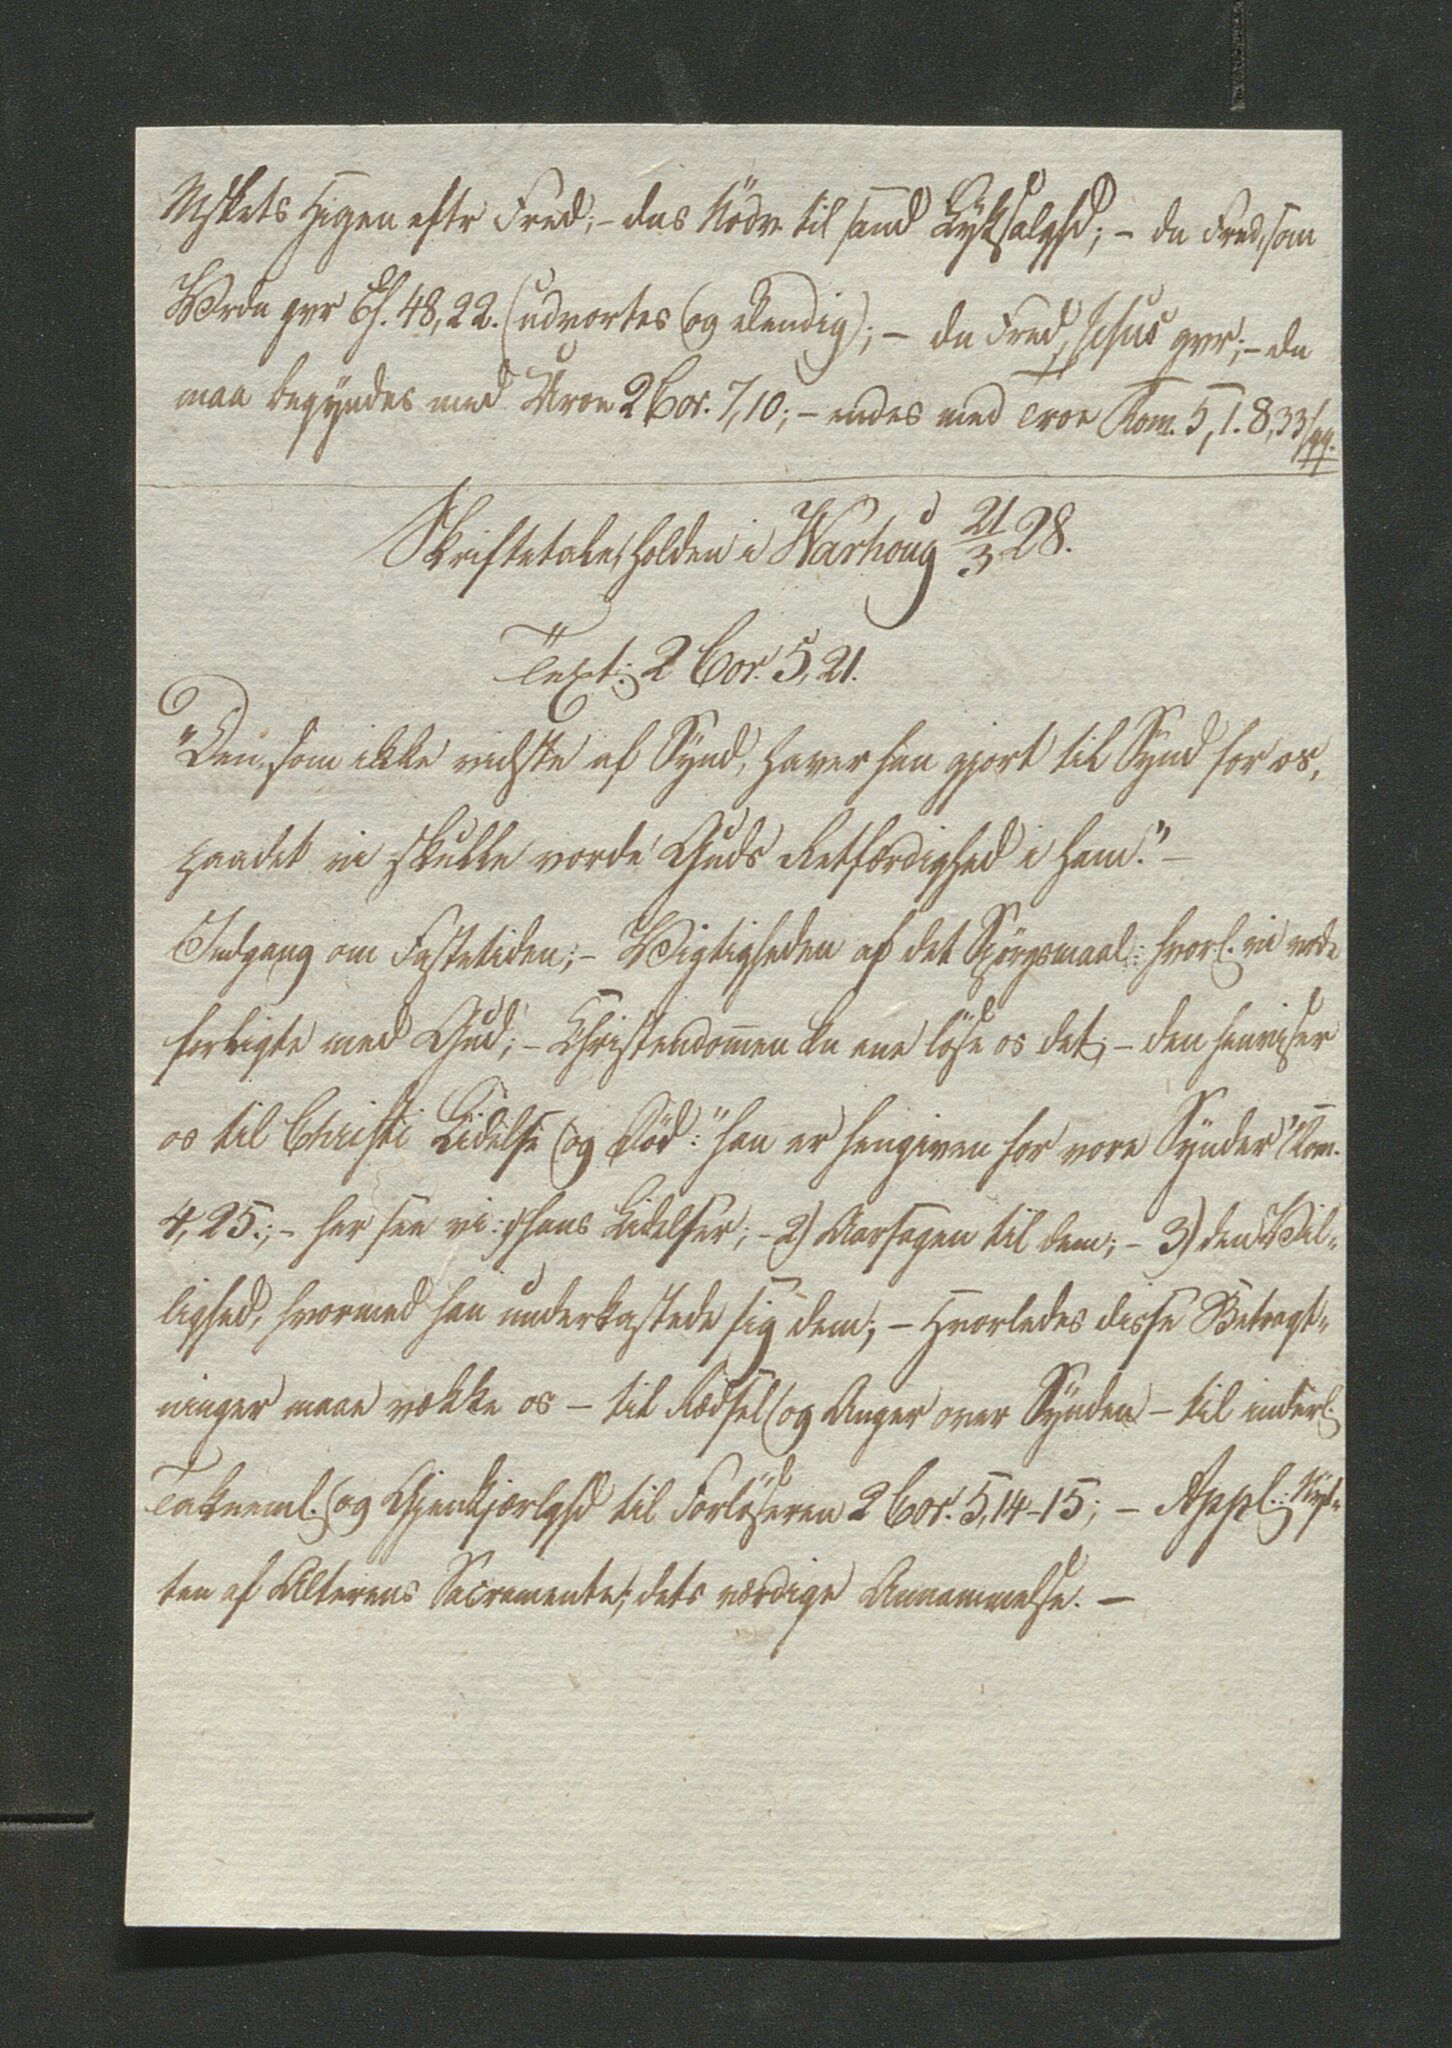 Mskets Higen eftr Fred; – dns Nödv. til sand Lyksalghd; – dn Fred, som
Verdn gvr Es. 48,22. (udvortes og elendig); – dn Fred, Jesus gvr; – dn
maa begyndes med Uroe 2 Cor. 7,10; – endes med Troe Rom. 5,1. 8,33 sqq.
Skriftetale, holden i Warhoug 21/3 28.
Text: 2 Cor. 5,21.
"Den, som ikke vidste af Synd, haver han gjort til Synd for os,
paadet vi skulle vorde Guds Retfærdighed i ham." –
Indgang om Fastetiden; – Vigtigheden af det Spörgsmaal: hvorl. vi vorde
forligte med Gud; – Christendommen kn ene löse os det; – den henviser
os til Christi Lidelse og Död: "han er hengiven for vore Synder" Rom.
4,25.; – her see vi: 1) hans Lidelser; – 2) Aarsagen til dem; – 3) den Vil-
lighed, hvormed han underkastede sig dem; – Hvorledes disse Betragt-
ninger maae vække os – til Rædsel og Anger over Synden – til inderl.
Takneml. og Gjenkjærlghd til Forlöseren 2 Cor. 5,14-15; – Appl.: Nyt-
ten af Alterens Sacramente, dets værdige Annammelse. –